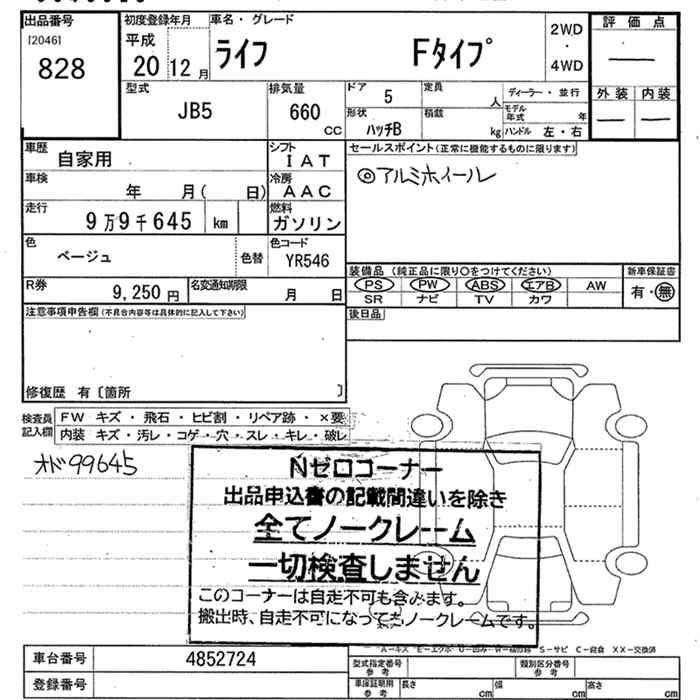 出品番号
[2046]
828
初度登録年月
平成
20 12 月
車名・グレード
ライフ Fタイプ
2WD
・
4WD
評価点
外装 内装
型式
JB5
排気量
660
CC
ドア 5
定員
人
ディーラー・並行
形状
ハッチB
積載
kg
モデル年式 年
ハンドル 左・右
車歴
自家用
シフト
IAT
車検
年 月( 日)
冷房
AAC
走行
9万9千645 km
燃料
ガソリン
色
ベージュ
色替
色コード
YR546
R券
9,250 円
名変通知期限
月 日
セールスポイント(正常に機能するものに限ります)
◎アルミホイール
装備品 (純正品に限り○をつけてください)
PS PW ABS エアB AW
SR ナビ TV カワ
新車保証書
有・無
後日品
注意事項申告欄(不具合内容等は具体的に記入して下さい)
修復歴 有〔箇所 〕
検査員
記入欄
FW キズ・飛石・ヒビ割・リペア跡・×要
内装 キズ・汚レ・コゲ・穴・スレ・キレ・破レ
オド99645
Nゼロコーナー
出品申込書の記載間違いを除き
全てノークレーム
一切検査しません
このコーナーは自走不可も含みます。
搬出時、自走不可になってもノークレームです。
S-サビ C-腐食 XX-交換済
車台番号
4852724
登録番号
型式指定番号
参考
類別区分番号
参考
車保証明用
参考
長さ cm
幅 cm
高さ cm